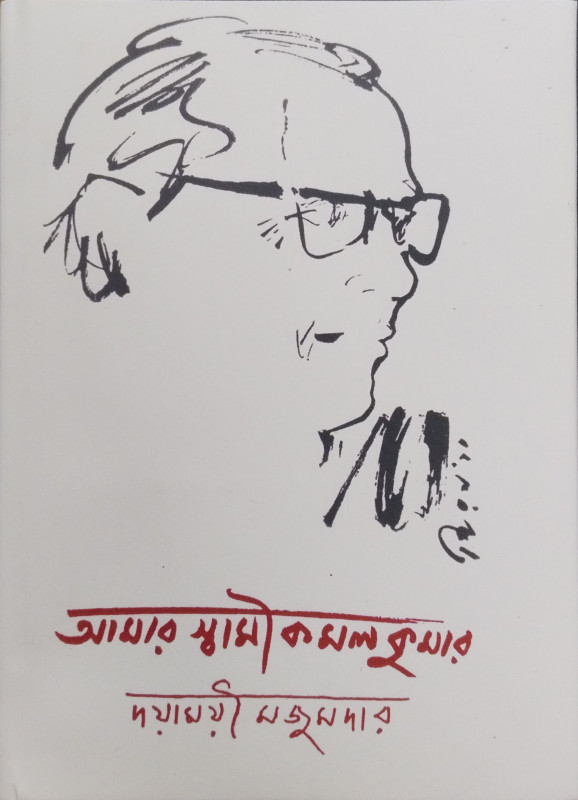 আমার স্বামী কমলকুমার
দয়াময়ী মজুমদার